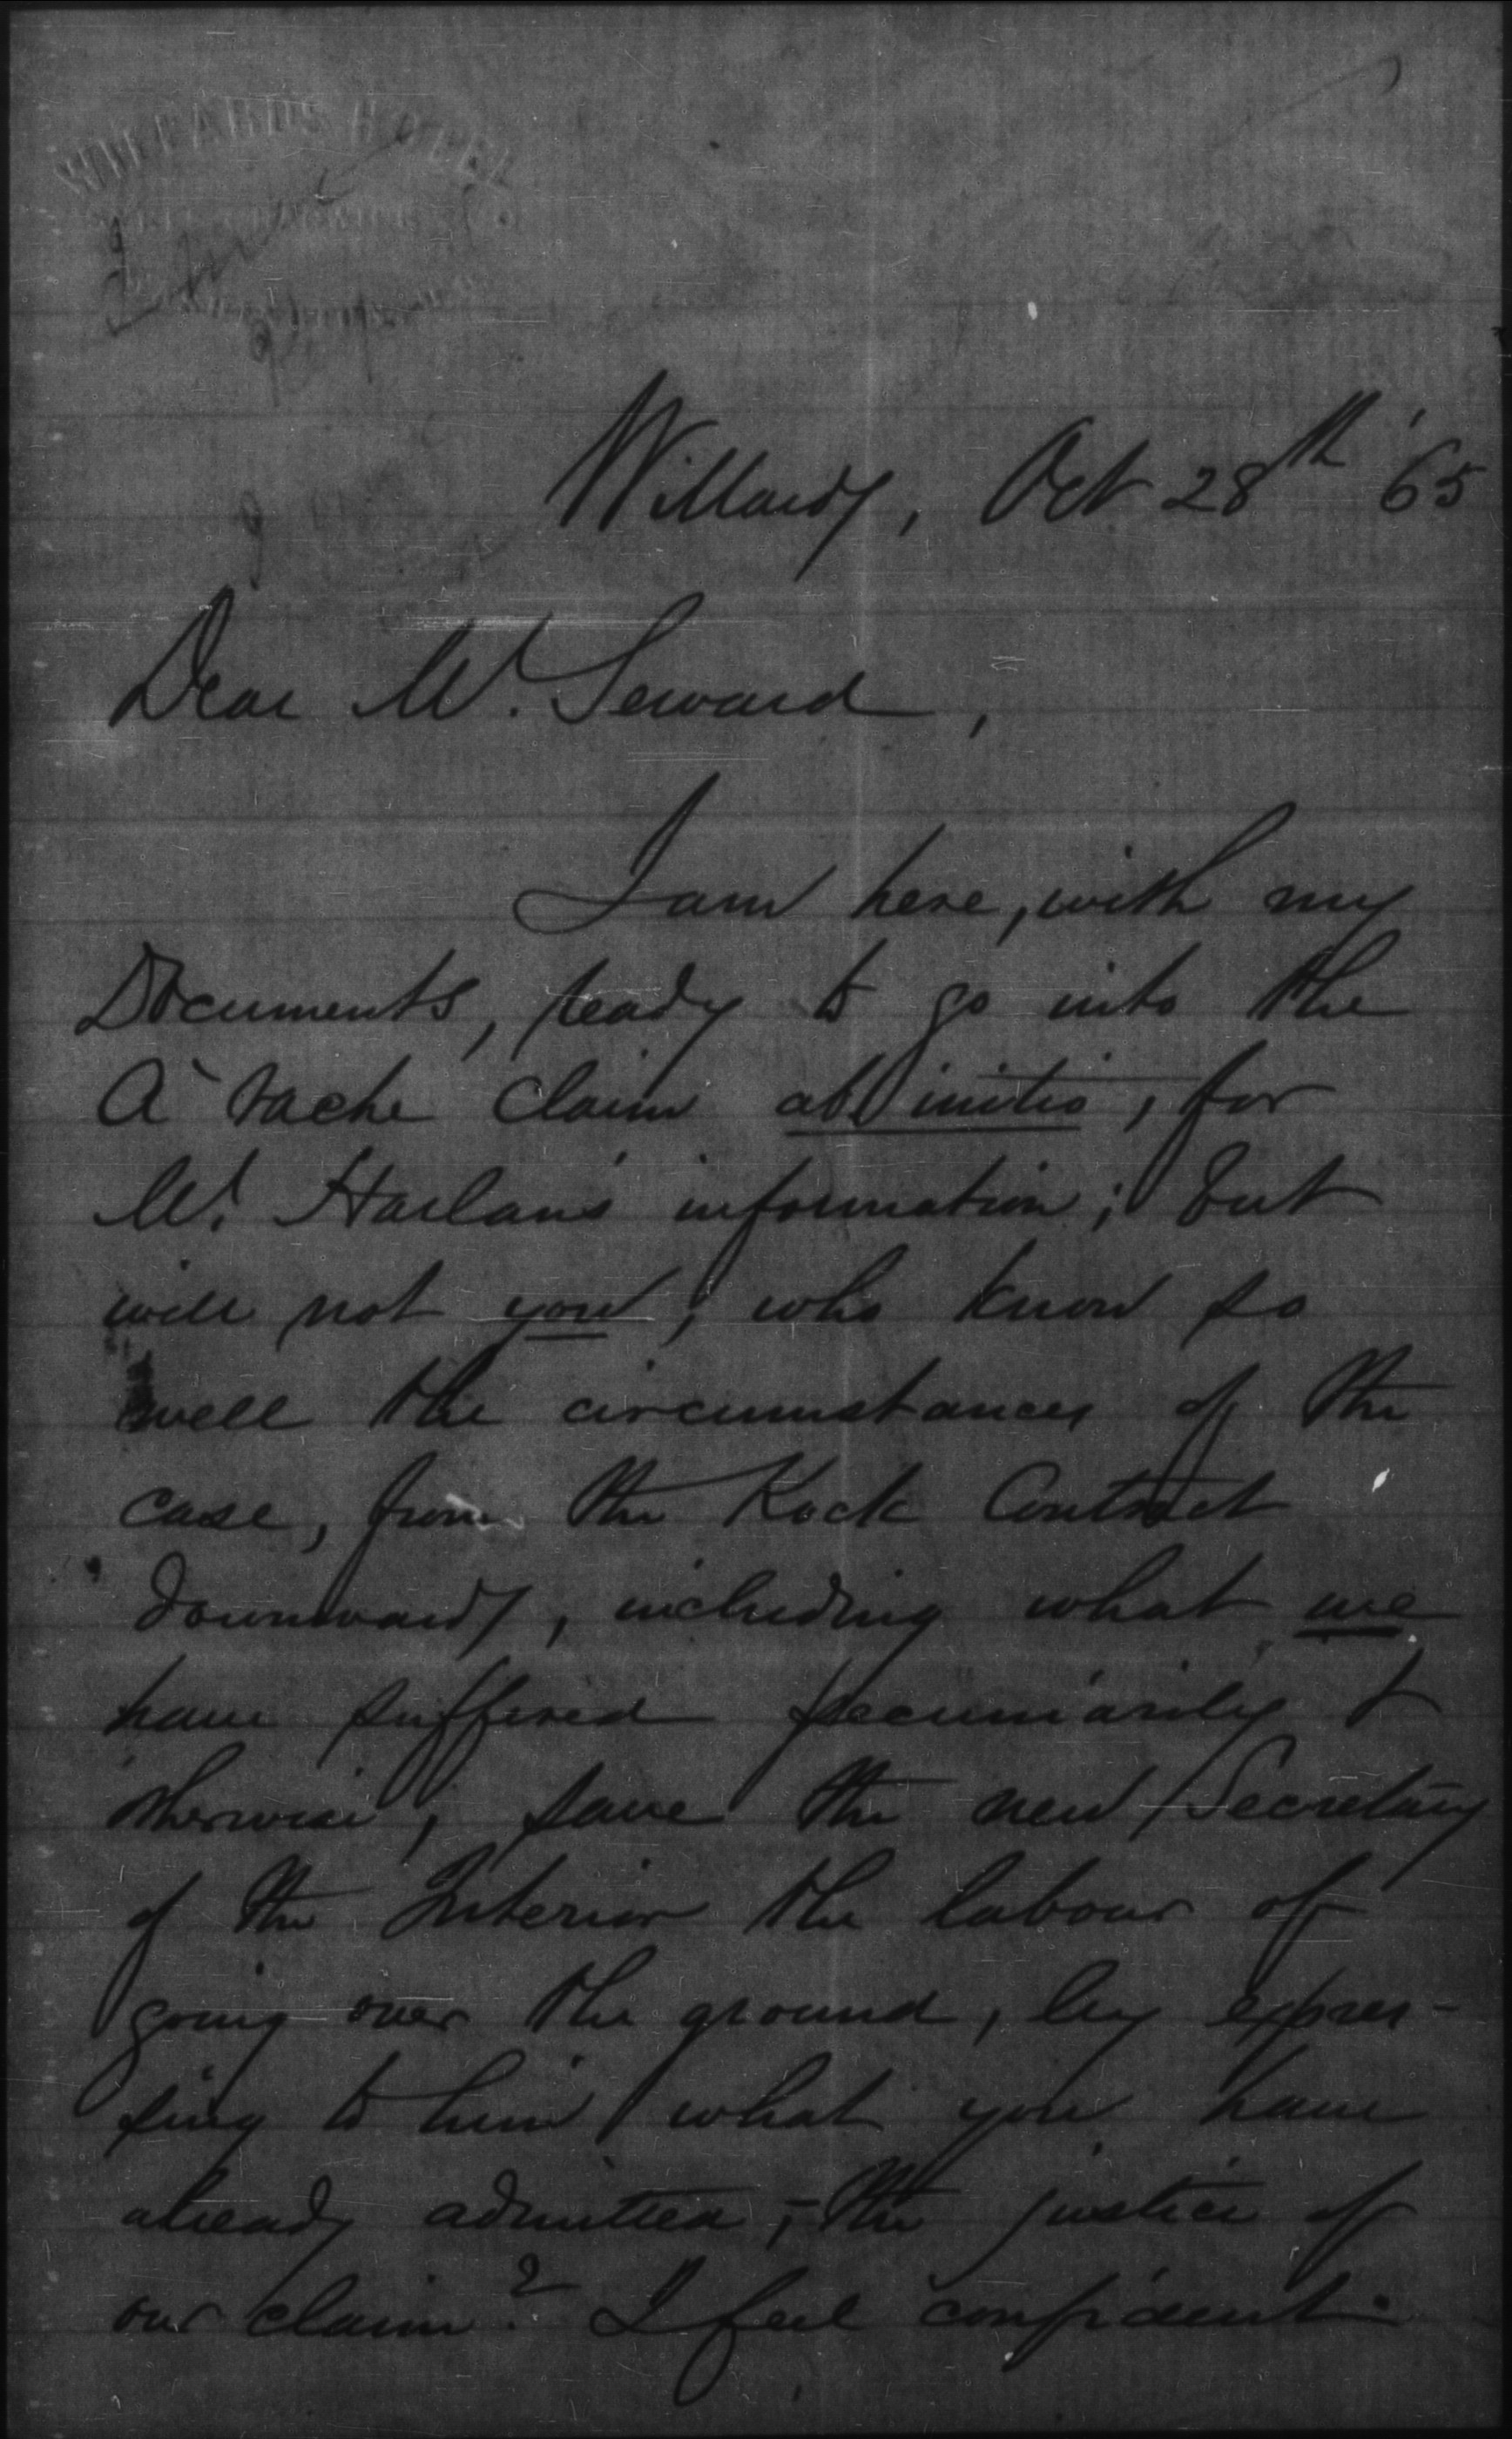 WILLARDS HOTEL
Willards, Oct 28th '65
Dear Mr. Seward,
I am here, with my
Documents, ready to go into the
A Vache claim ab initio, for
Mr. Harlan's information; but
will not you, who know so
well the circumstances of the
case, from the Kock Contract
downwards, including what we
have suffered pecuniarily &
otherwise, save the new Secretary
of the Interior the labour of
going over the ground, by expres-
sing to him what you have
already admitted, - the justice of
our claim? I feel confident